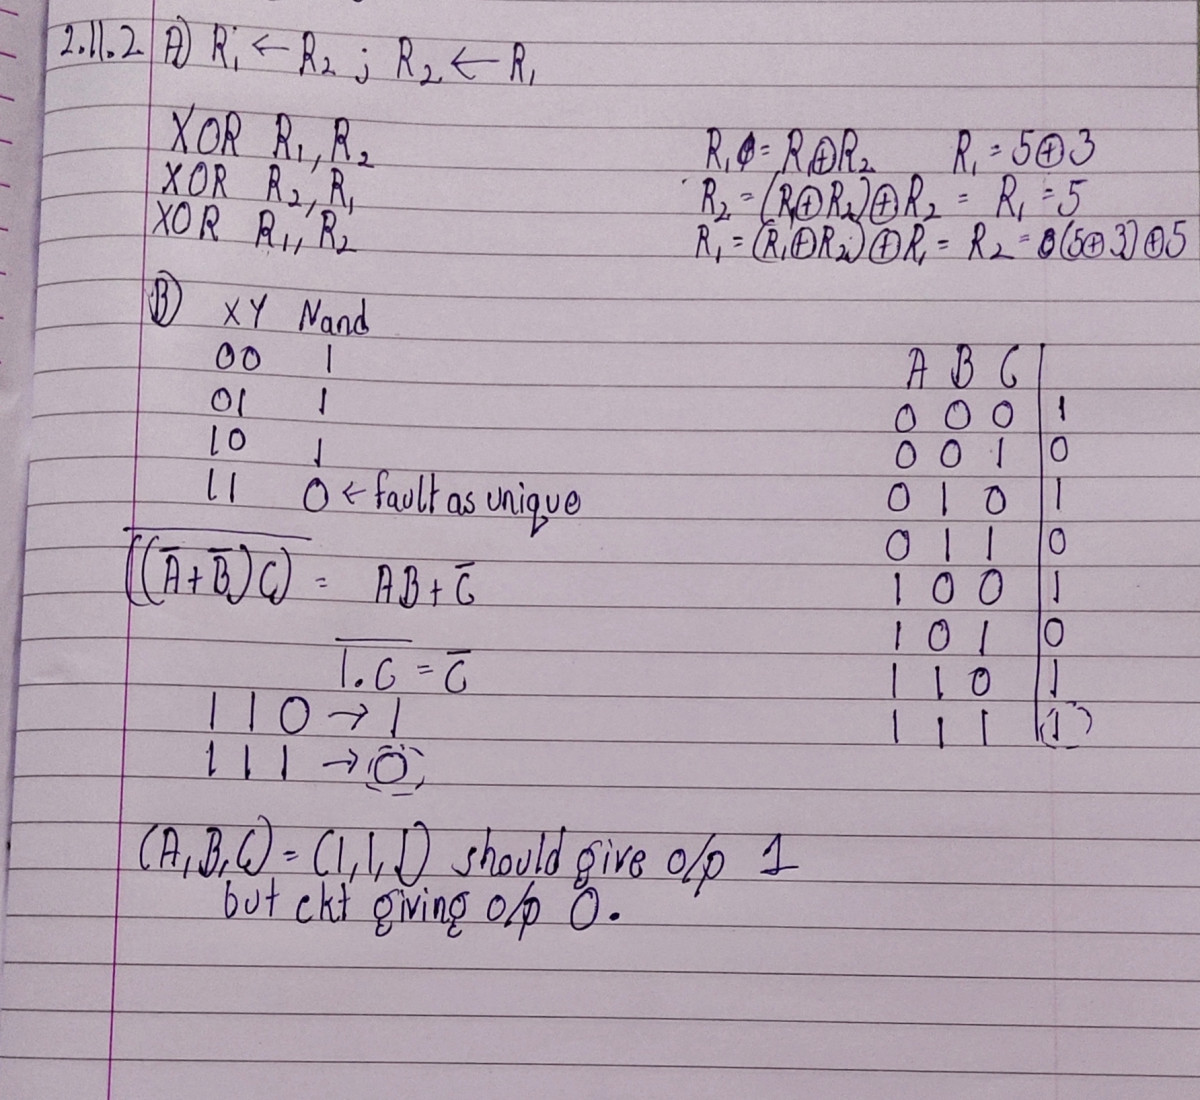 2.11.2 A) R₁ ← R₂ ; R₂ ← R₁
XOR R₁, R₂
XOR R₂, R₁
XOR R₁, R₂
R₁ = R⊕R₂ R₁ = 5⊕3
R₂ = (R⊕R₂)⊕R₂ = R₁ = 5
R₁ = (R₁⊕R₂)⊕R₁ = R₂ = (5⊕3)⊕5
B) X Y Nand
00 1
01 1
10 1
11 0 ← fault as unique
A B C
0 0 0 1
0 0 1 0
0 1 0 1
0 1 1 0
1 0 0 1
1 0 1 0
1 1 0 1
1 1 1 1
\overline{(A̅+B̅)C} = AB+C̅
\overline{1.C} = C̅
110 → 1
111 → 0
(A,B,C) = (1,1,1) should give o/p 1
but ckt giving o/p 0.